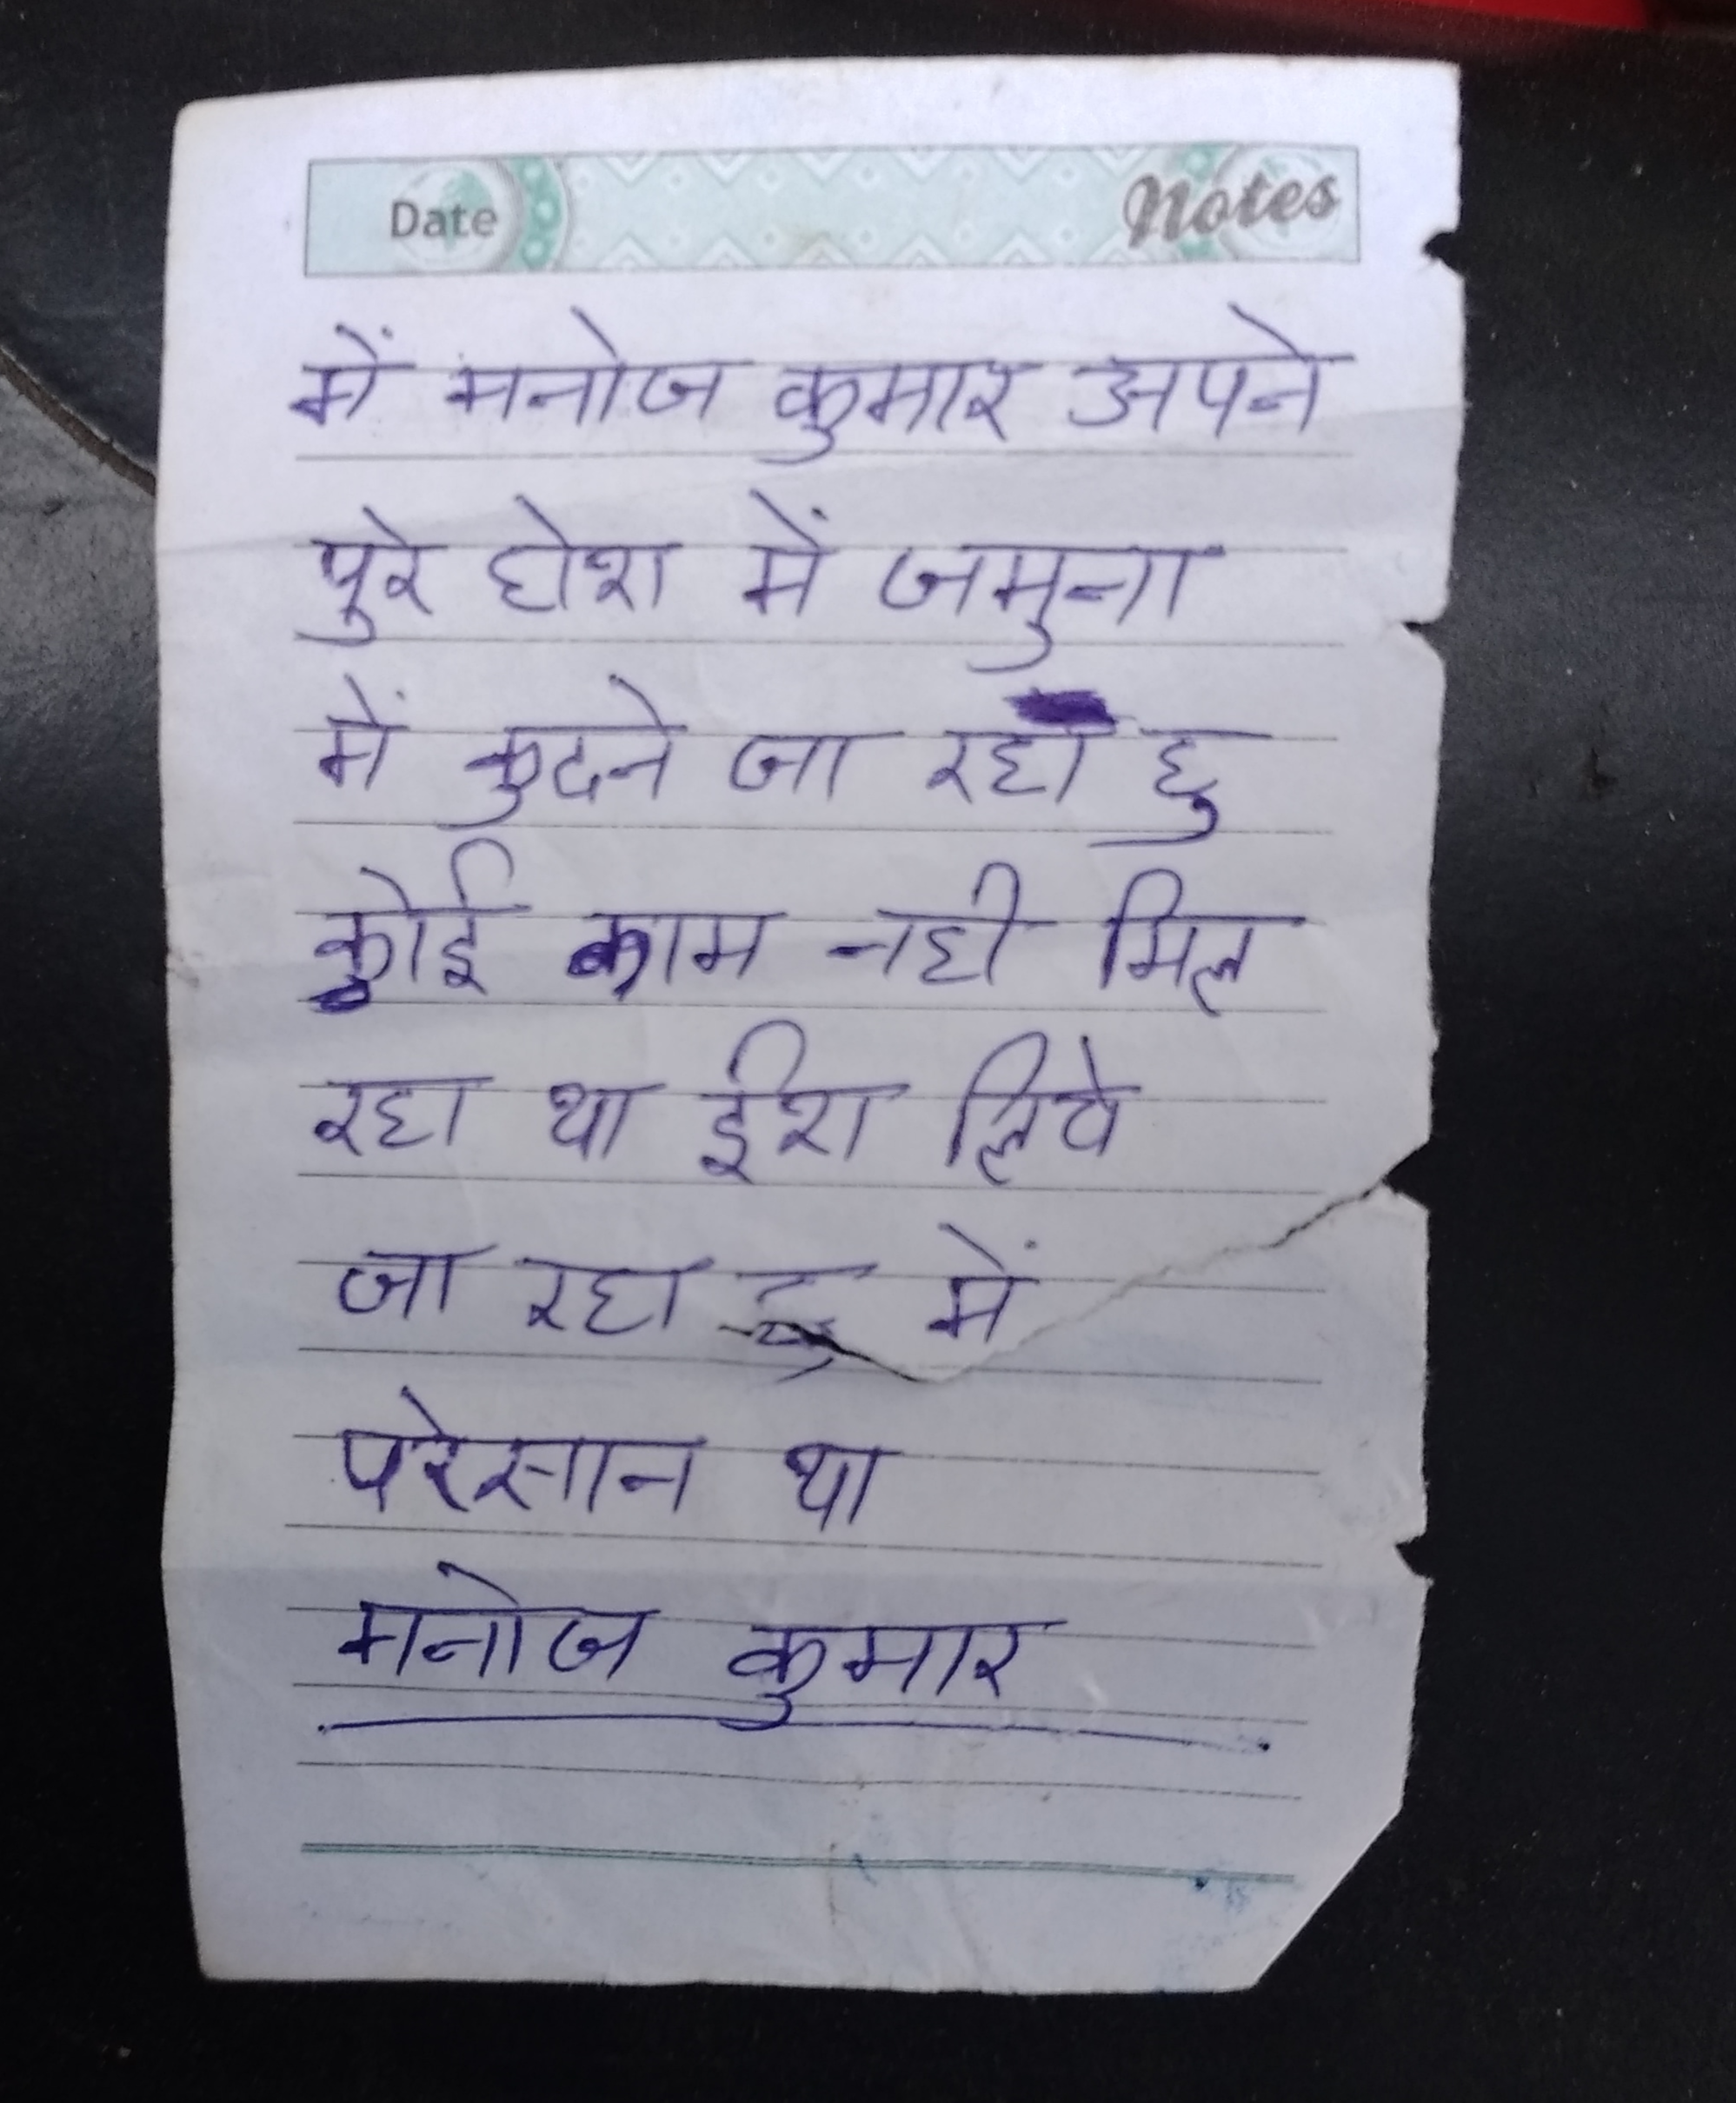 Date Notes
में मनोज कुमार अपने
पुरे होश में जमुना
में कुदने जा रहा हु
कोई काम नही मिल
रहा था ईश लिये
जा रहा हु में
परेसान था
मनोज कुमार